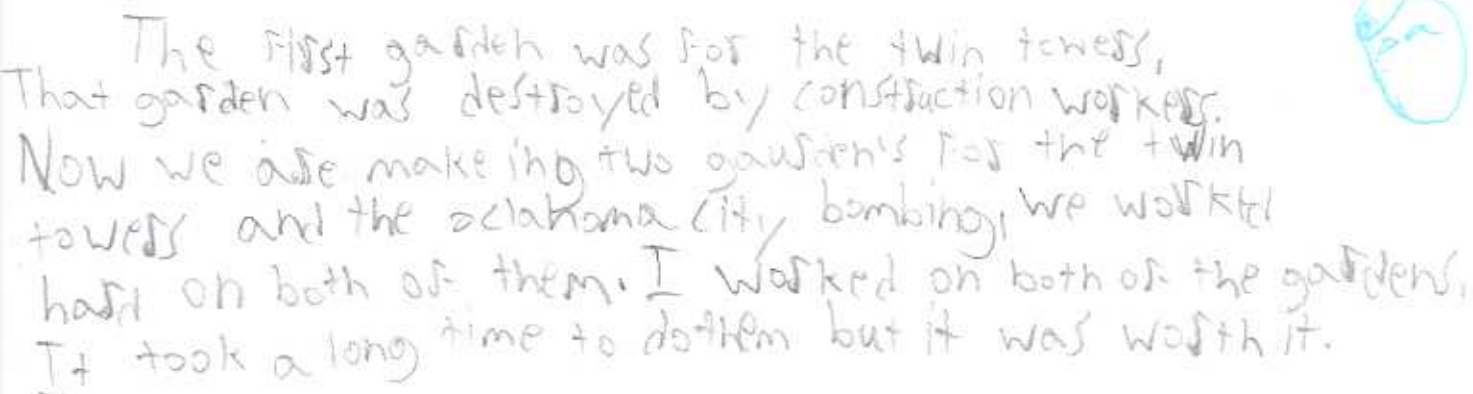 The first garden was for the twin towers,
That garden was destroyed by construction workers.
Now we are make ing two gaurden's for the twin
towers and the oclahoma city bombing, we worked
hard on both of them. I worked on both of the gardens.
It took a long time to do them but it was worth it.